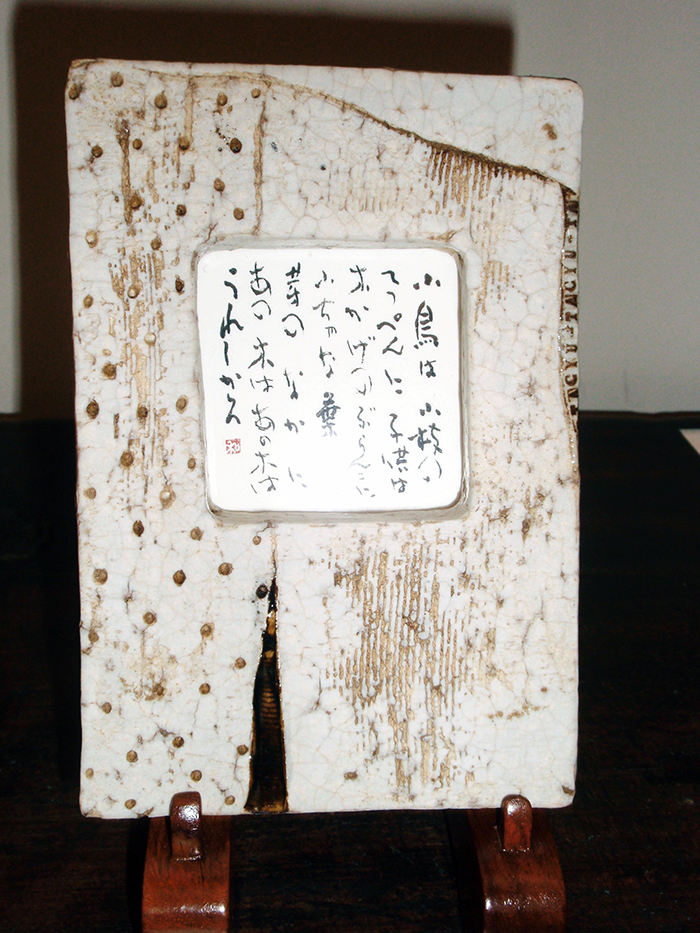 小鳥は 小枝の
てっぺんに 子供は
木かげのぶらんこに
小ちゃな 葉
芽の なかに
あの 木は あの木は
うれしかろ
TACYU-TACYU